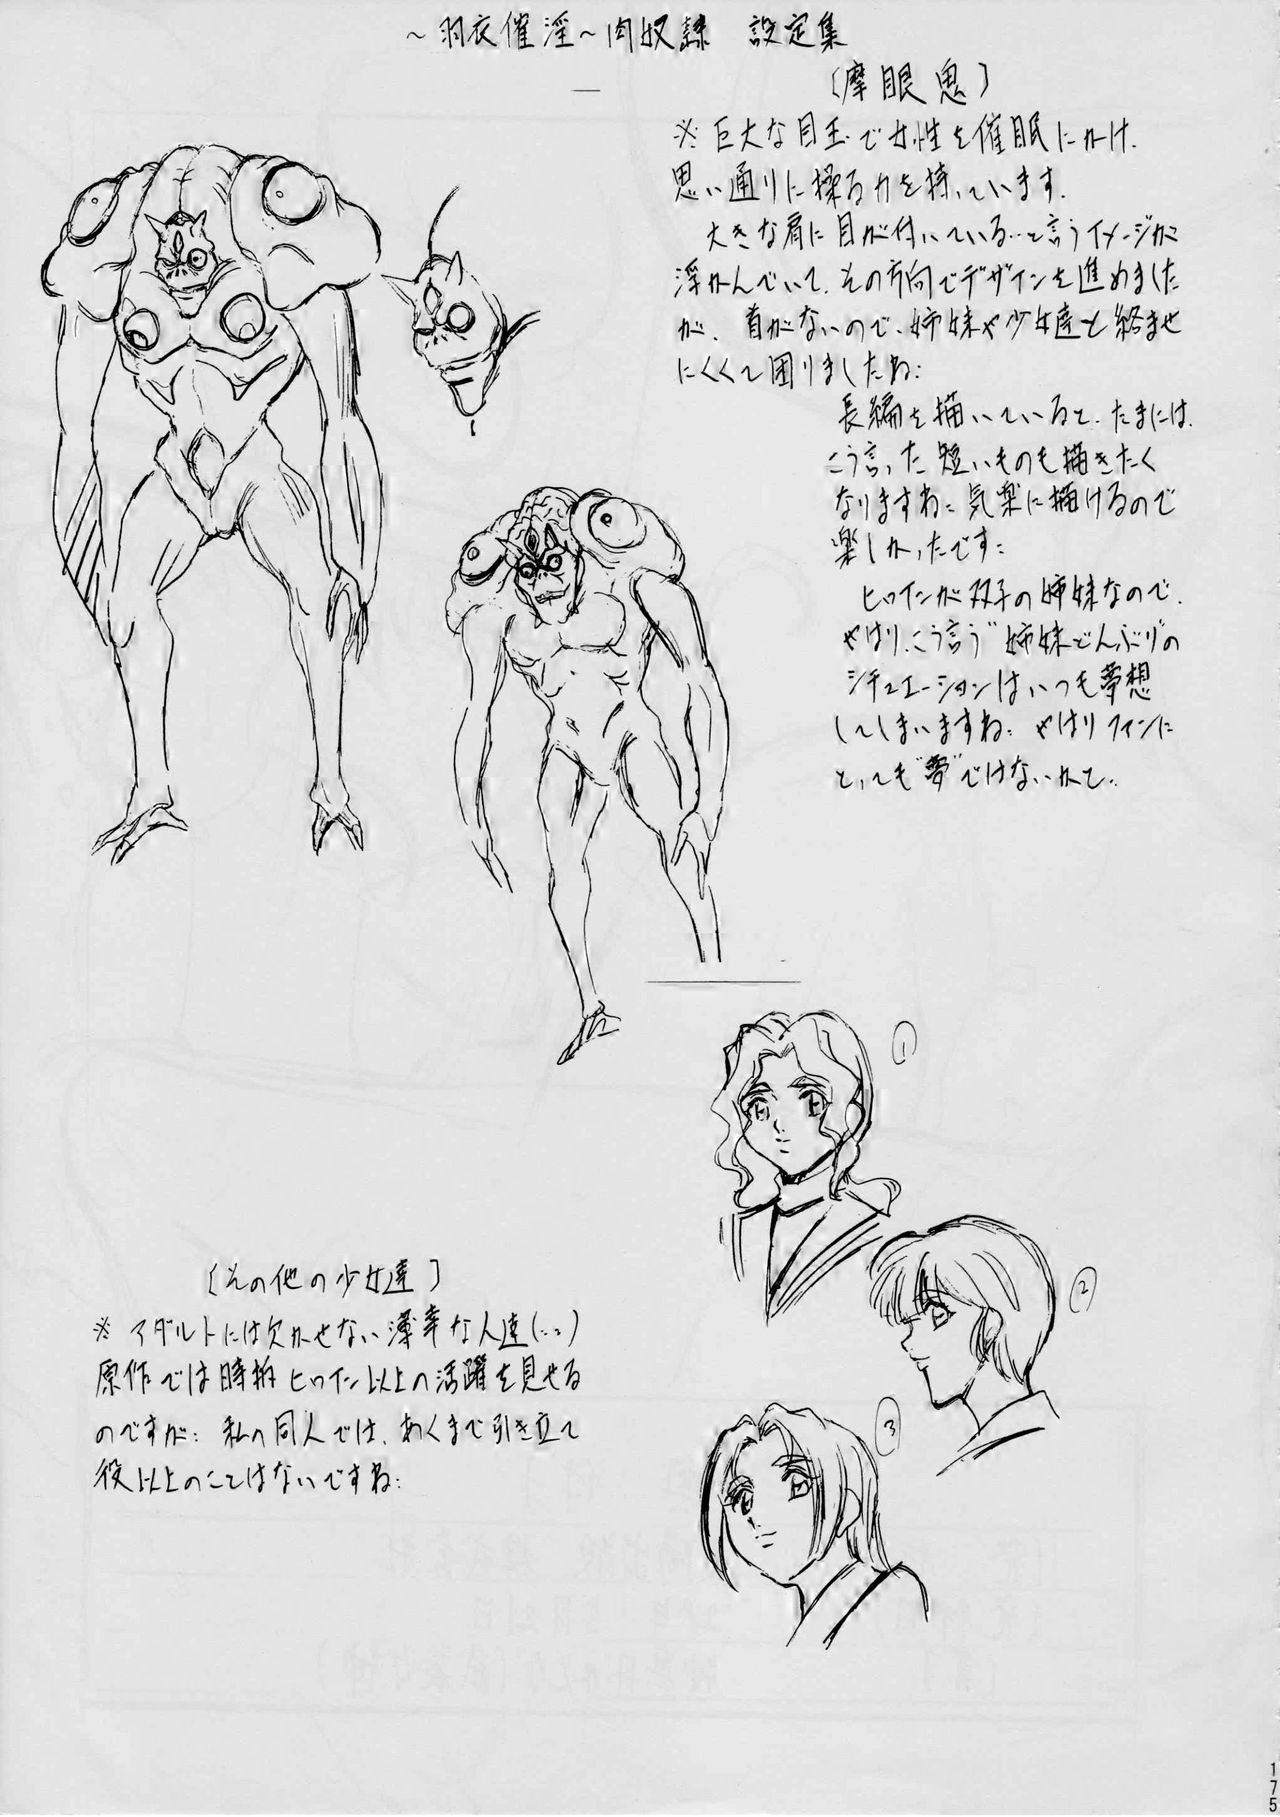 ～羽衣催淫～肉奴隷　設定集
〔摩眼鬼〕
※巨大な目玉で女性を催眠にかけ、
思い通りに操る力を持っています。
大きな肩に目が付いている…と言うイメージが
浮かんでいて、その方向でデザインを進めました
が、首がないので、姉妹や少女達と絡ませ
にくくて困りましたね…
長編を描いていると、たまには、
こう言った短いものも描きたく
なりますね…気楽に描けるので
楽しかったです…
ヒロインが双子の姉妹なので、
やはり、こう言う"姉妹どんぶり"の
シチュエーションはいつも夢想
してしまいますね…やはりファンに
とっても"夢"ではないかと…
①
②
③
〔その他の少女達〕
※アダルトには欠かせない薄幸な人達(…)
原作では時折ヒロイン以上の活躍を見せる
のですが…私の同人では、あくまで引き立て
役以上のことはないですね…
175